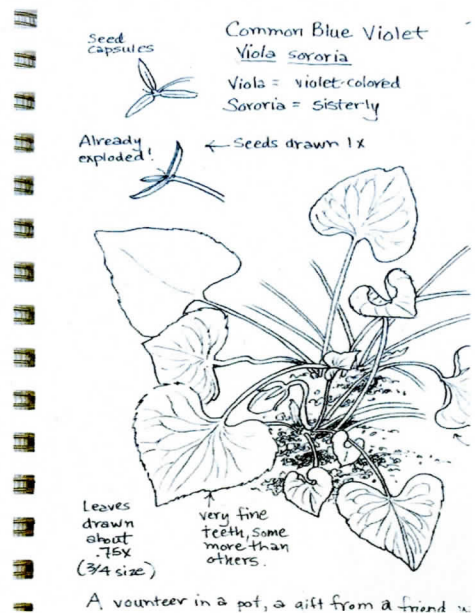 Seed
capsules
Common Blue Violet
Viola sororia
Viola = violet-colored
Sororia = Sisterly
Already
exploded!
← Seeds drawn 1x
Leaves
drawn
about
.75x
(3/4 size)
very fine
teeth, some
more than
others.
A vounteer in a pot, a gift from a friend